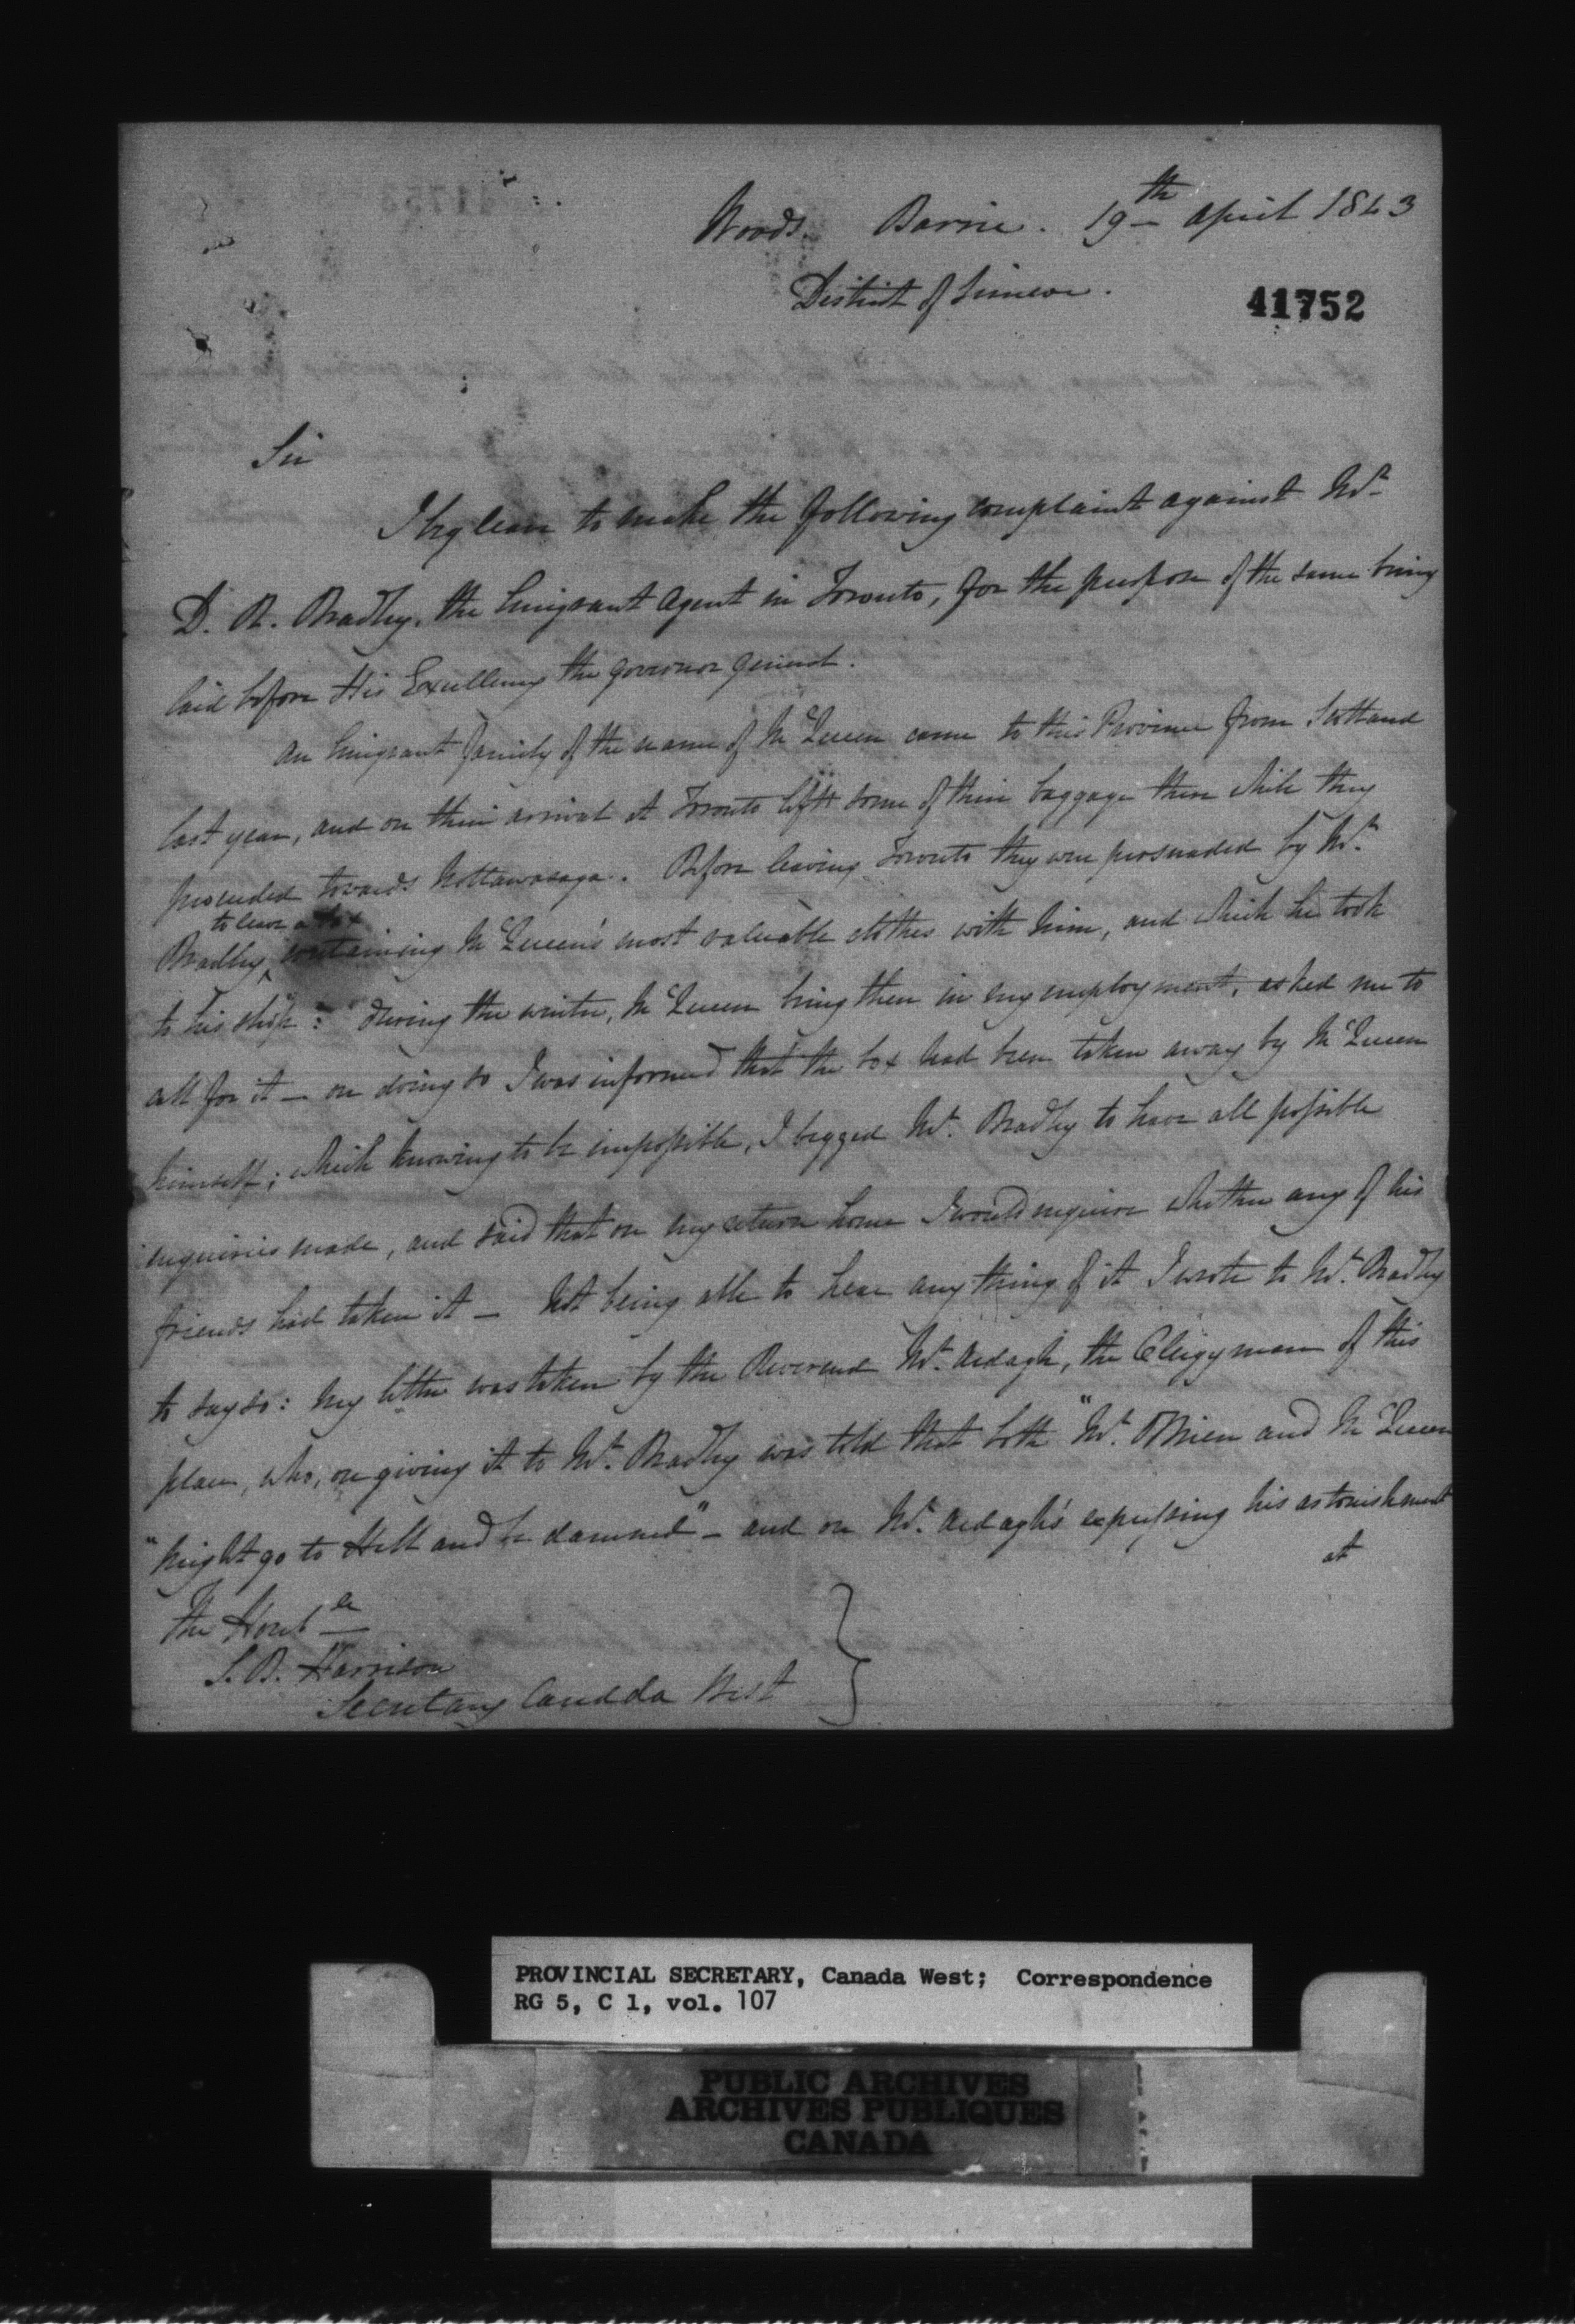 Woods. Barrie. 19th April 1843
District of Simcoe.
41752
Sir
I beg leave to make the following complaint against Mr
D. R. Bradley, the Emigrant Agent in Toronto, for the purpose of the same being
laid before His Excellency the Governor General.
An Emigrant family of the name of McQueen came to this Province from Scotland
last year, and on their arrival at Toronto left some of their baggage there while they
proceeded towards Nottawasaga. Before leaving Toronto they were persuaded by Mr
to leave a box
Bradley ^ containing McQueen's most valuable clothes with him, and which he took
to his shop: During the winter, McQueen being then in my employment, asked me to
call for it — on doing so I was informed that the box had been taken away by McQueen
himself; which knowing to be impossible, I begged Mr. Bradley to have all possible
inquiries made, and said that on my return home I would inquire whether any of his
friends had taken it — Not being able to hear any thing of it I wrote to Mr. Bradley
to say so: my letter was taken by the Reverend Mr. Ardagh, the Clergyman of this
place, who, on giving it to Mr. Bradley was told that both "Mr. O'Brien and McQueen
"might go to Hell and be damned" — and on Mr. Ardagh's expressing his astonishment
at
The Honble
S. B. Harrison
Secretary Canada West
PROVINCIAL SECRETARY, Canada West; Correspondence
RG 5, C 1, vol. 107
PUBLIC ARCHIVES
ARCHIVES PUBLIQUES
CANADA